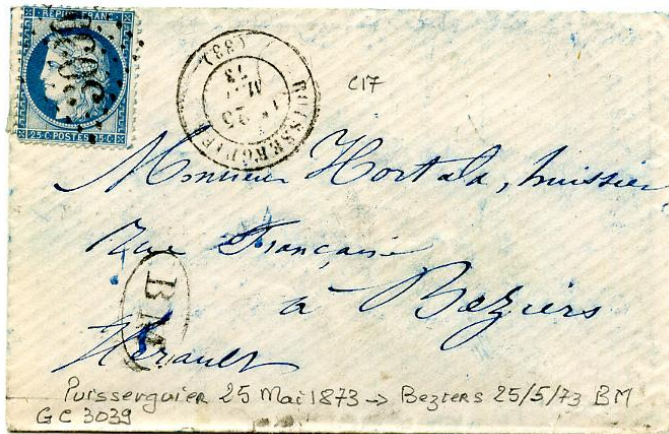 REPUB FRANC
3039
25 C POSTES 25 C
PUISSERGUIER
25
MAI
73
(33)
C17
Monsieur Hortala, huissier
Rue Française
à Beziers
Hérault
BM
Puisserguier 25 Mai 1873 → Beziers 25/5/73 BM
GC 3039